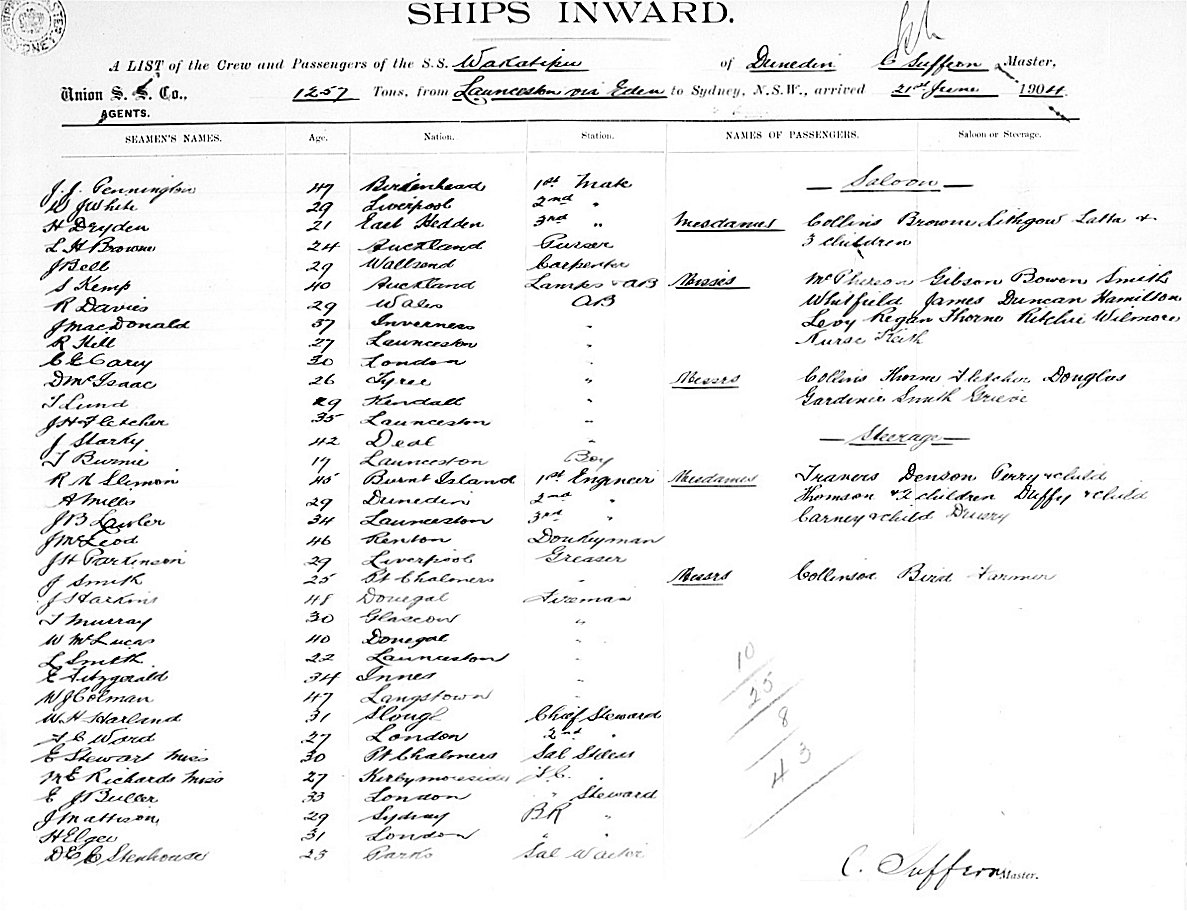 SHIPS INWARD.
A LIST of the Crew and Passengers of the S.S. Wakatipu of Dunedin C Suffern Master,
Union S. S. Co., 1257 Tons, from Launceston via Eden to Sydney, N.S.W., arrived 21st June 1904
AGENTS.
SEAMEN'S NAMES. Age. Nation. Station. NAMES OF PASSENGERS. Saloon or Steerage.
J. J. Pennington 47 Birkenhead 1st Mate — Saloon —
W J White 29 Liverpool 2nd "
H Dryden 21 East Hedden 3rd " Mesdames Collins Browne Lithgow Latta +
L H Browne 24 Auckland Purser 3 children
J Bell 29 Wallsend Carpenter
S Kemp 40 Auckland Lamps + AB Misses McPherson Gibson Bowen Smith
R Davies 29 Wales AB Whitfield James Duncan Hamilton
J MacDonald 37 Inverness " Levy Regan Thorne Ritchie Wilmore
R Hill 27 Launceston " Nurse Keith
C E Carey 30 London "
D McIsaac 26 Tyree " Messrs Collins Thorne Fletcher Douglas
T Lund 29 Kendall " Gardiner Smith Grieve
J H Fletcher 35 Launceston "
J Starky 42 Deal " — Steerage —
T Burnie 17 Launceston Boy
R N Slimon 45 Burnt Island 1st Engineer Mesdames Travers Denson Perry + child
A Mills 29 Dunedin 2nd " Thomson + 2 children Duffy + child
J B Lawler 34 Launceston 3rd " Carney + child Drury
J McLeod 46 Renton Donkeyman
J H Parkinson 29 Liverpool Greaser
J Smith 25 Pt Chalmers " Messrs Collinson Bird Farmer
J Harkins 48 Donegal Fireman
T Murray 30 Glascow "
W McLucas 40 Donegal "
L Smith 22 Launceston "
E Fitzgerald 34 Innes "
W J Colman 47 Langstown "
W H Harland 31 Slough Chief Steward
F C Ward 27 London 2nd "
E Stewart Miss 30 Pt Chalmers Sal Stdess
M E Richards Miss 27 Kirbymoorside F.C. "
E J Buller 33 London " Steward
J Mattison 29 Sydney BR "
H Elgee 31 London " "
D E C Stenhouse 23 Sal Waiter
10
25
8
43
C. Suffern Master.